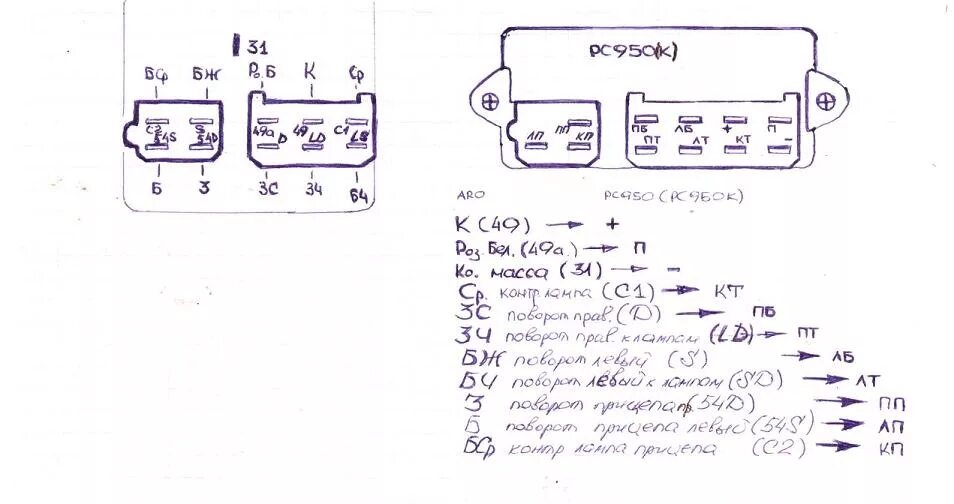 31
БЯ БЖ Роз.Б К Ср
C2 S 49a 49 C1
54S 54D D LD LS
Б З ЗС ЗЧ БЧ
РС950(К)
ЛП ПП КП
ПБ ЛБ + П
ПТ ЛТ КТ -
ARO РС950 (РС950К)
К (49) → +
Роз.Бел. (49a.) → П
Ко. масса (31) → -
Ср. контр лампа (С1) → КТ
ЗС поворот прав. (D) → ПБ
ЗЧ поворот прав. к лампам (LD) → ПТ
БЖ поворот левый (S) → ЛБ
БЧ поворот левый к лампам (SD) → ЛТ
З поворот прицепа пр. (54D) → ПП
Б поворот прицепа левый (54S) → ЛП
БСр контр лампа прицепа (С2) → КП